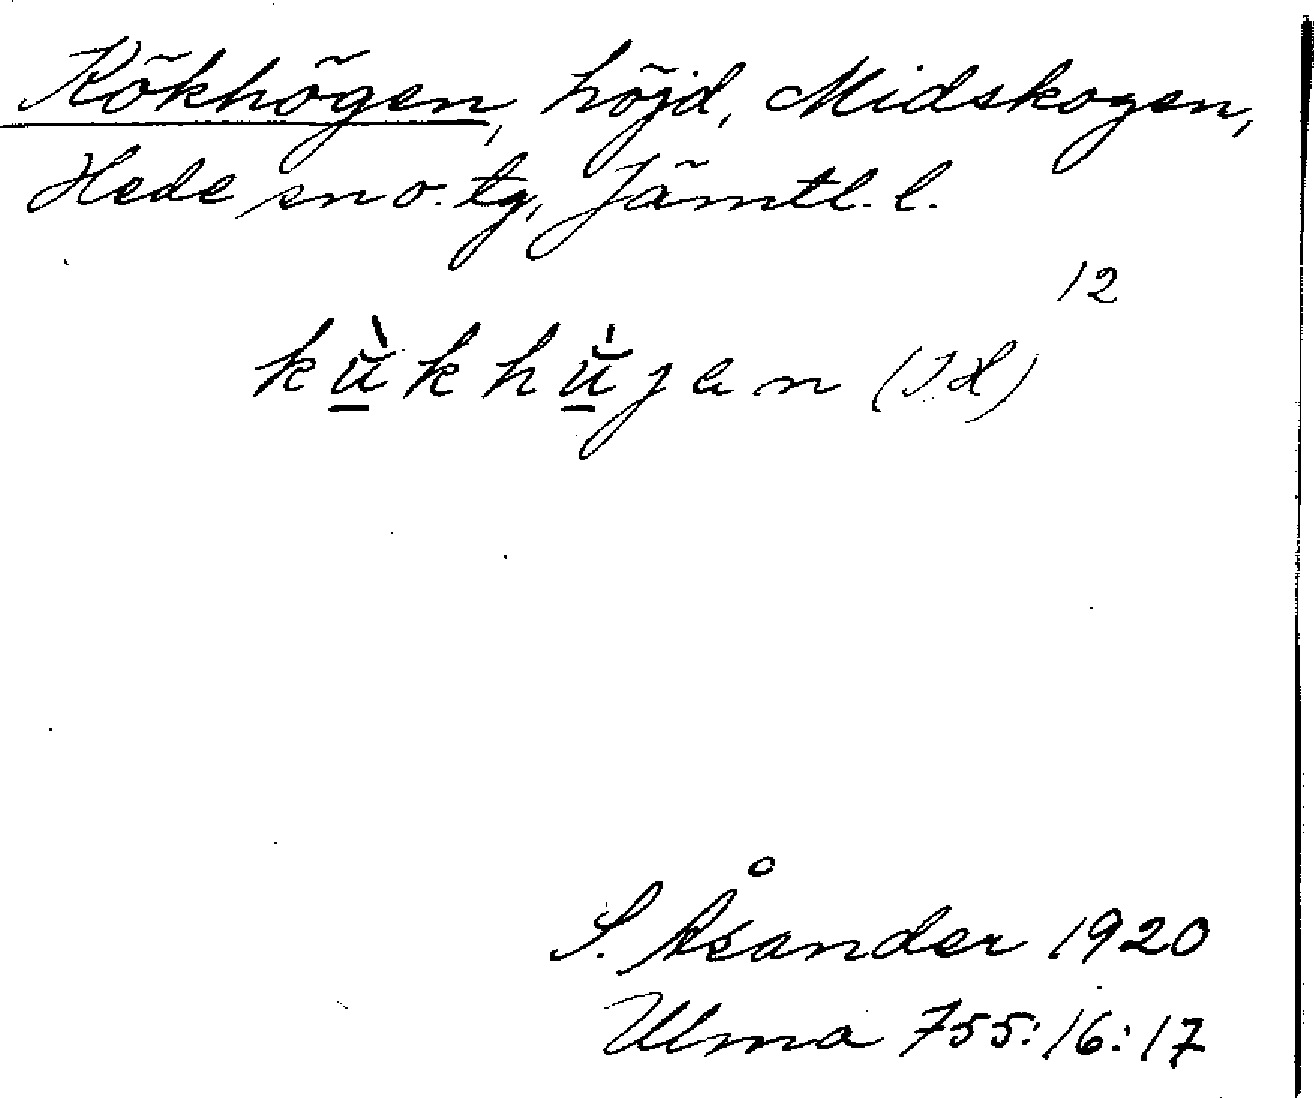 Kökhögen, höjd, Midskogen,
Hede sn o. tg, Jämtl. l.
12
kù̱khṳjan (IH)
S. Åsander 1920
Ulma 755:16:17